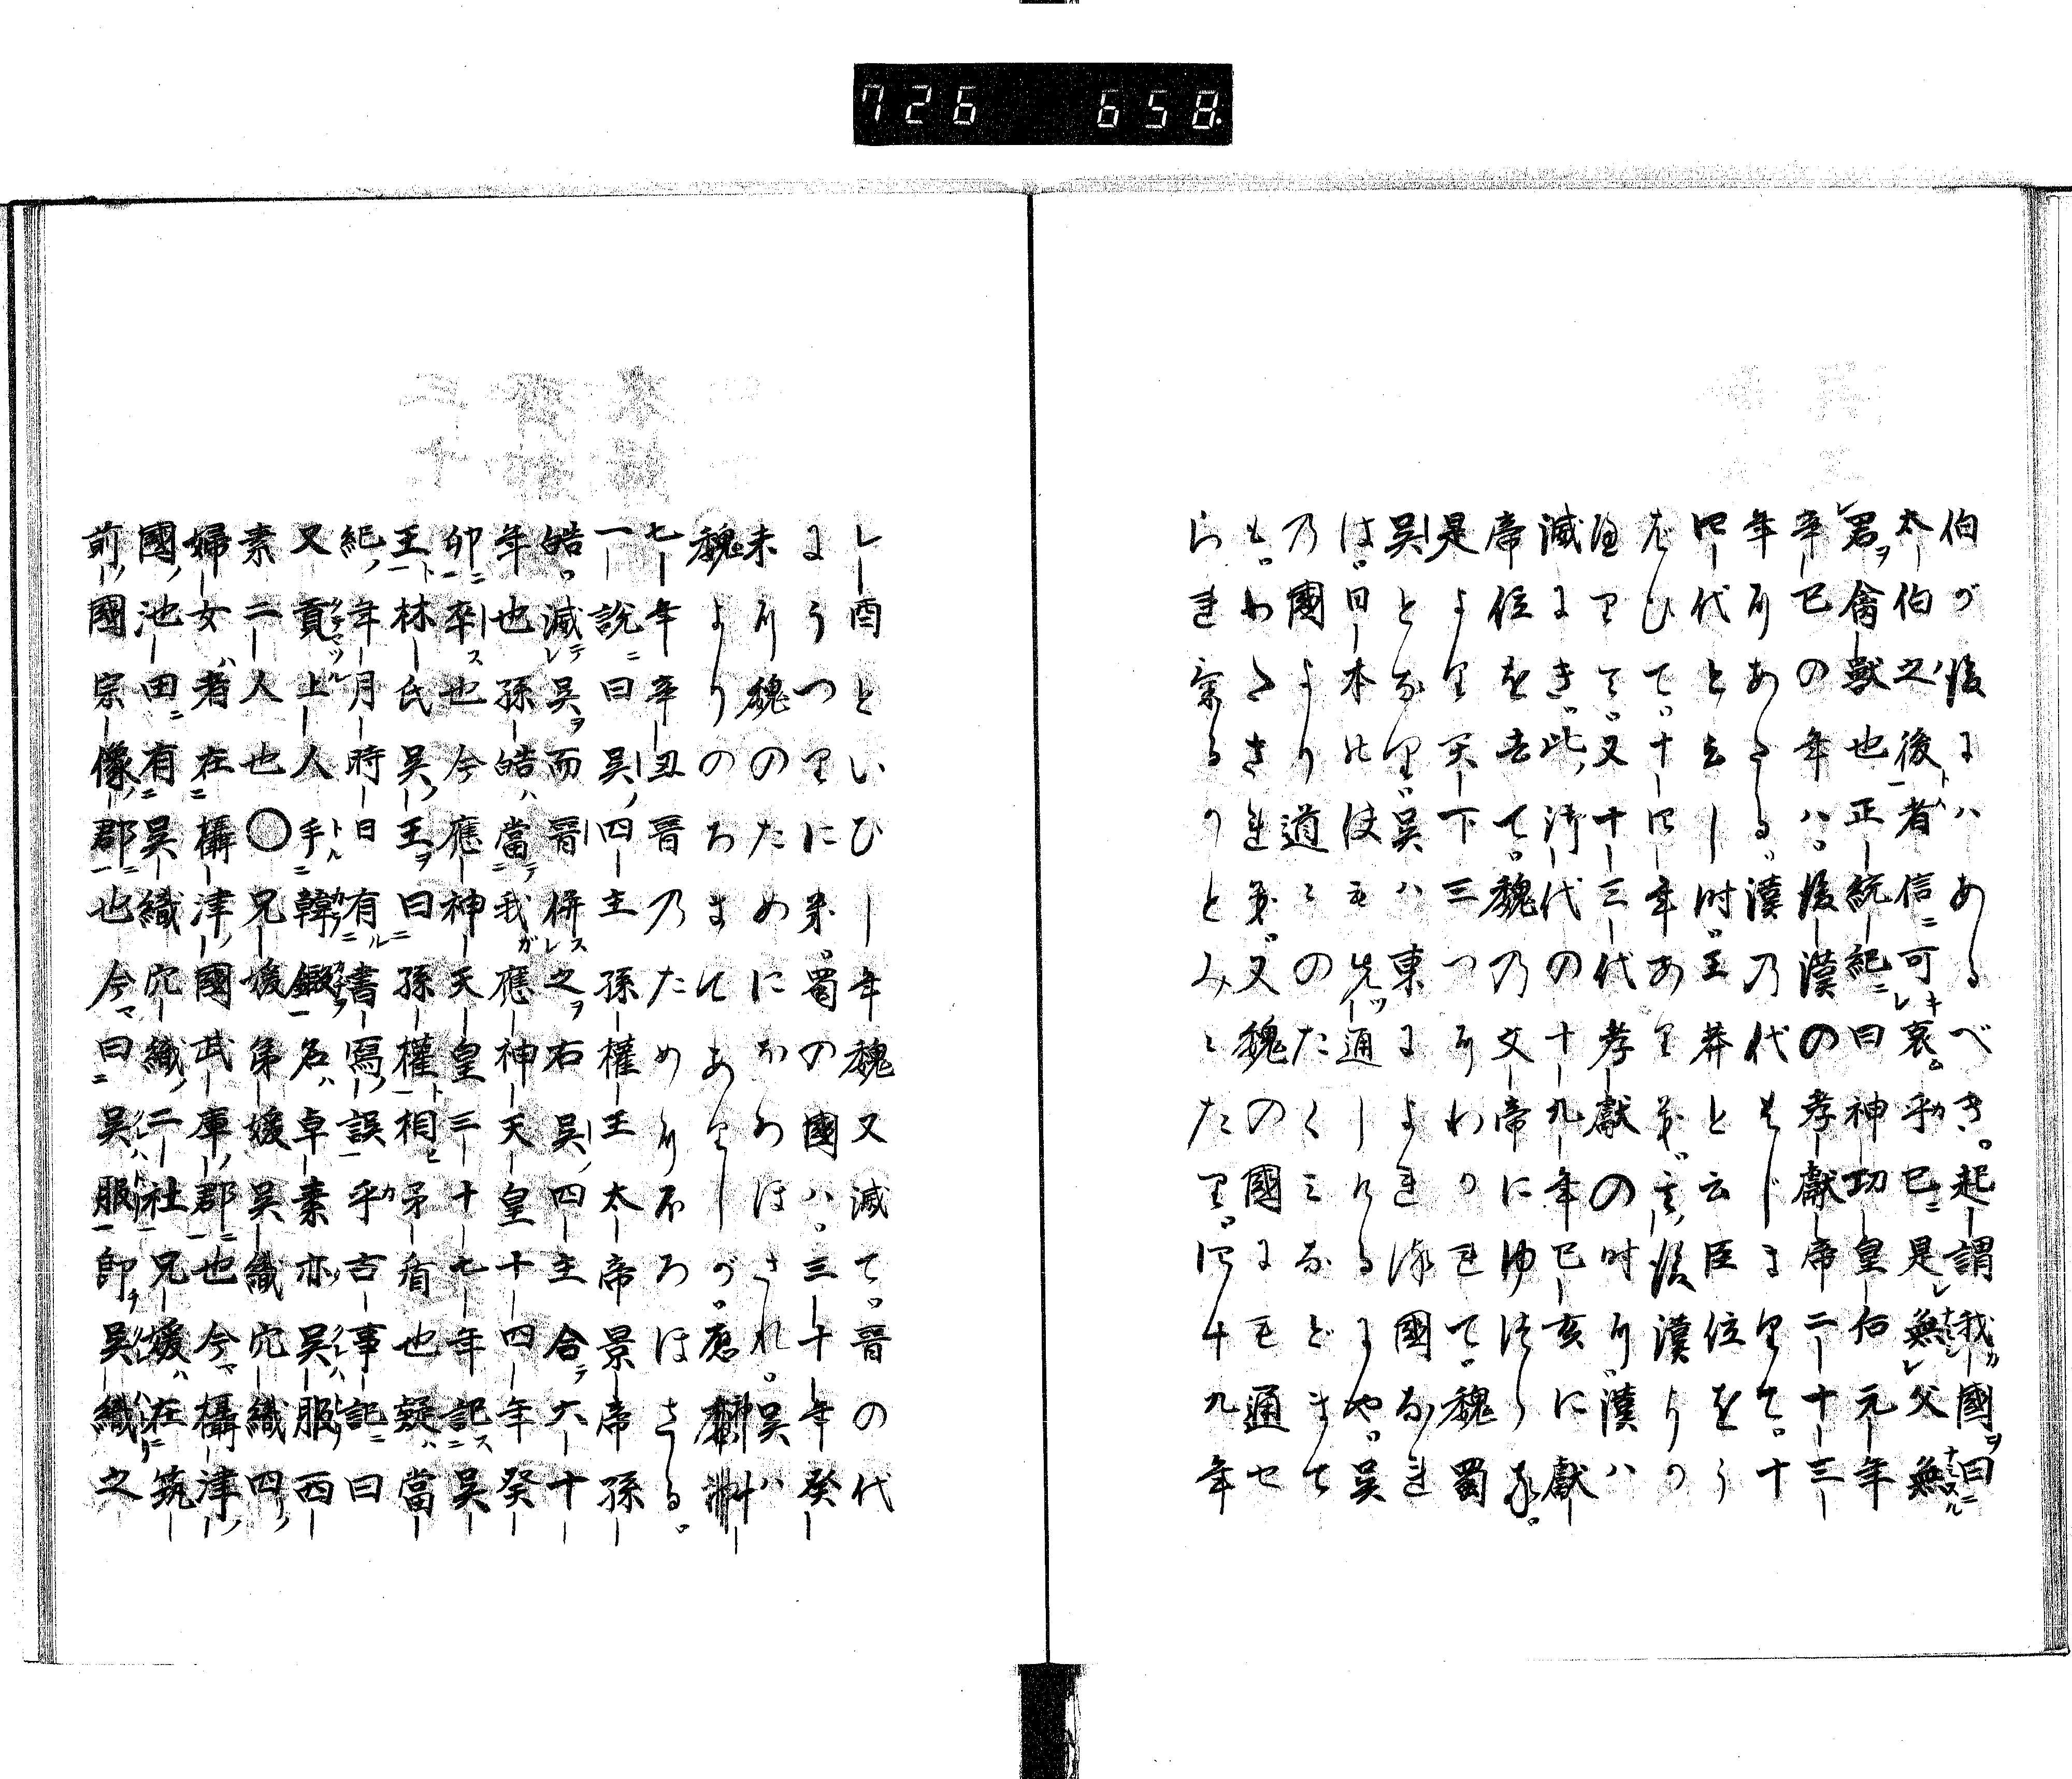 726 658
伯が後にハあるべき。起謂我國ヲ曰ニ
太伯之後ト者信ニ可哀乎已是無父無
君ヲ禽獣也正統紀ニ曰神功皇后元年
辛巳の年ハ。後漢の孝獻帝二十三
年にあたる。漢乃代はじまりて。十
四代と云し時。王莽と云臣位をう
ばひて。十四年ありき。其後漢
又十三代孝獻の時に。漢ハ
滅にき。此ノ御代の十九年己亥に獻
帝位を去て。魏乃文帝にゆづる。
是より天下三つにわかれて。魏蜀
吳となる。吳ハ東によれる國なれ
ば。日本の使も先ツ通しけるにや。吳
乃國より道々のたくミなどまで
もわたされき。又魏の國にも通せ
られけるかとみえたり。四十九年
酉といひし年魏又滅て。晋の代
にうつりにき。蜀の國ハ。三十年癸
未に魏のためにほろぼされ。吳ハ
魏よりのちまであり しが。應神
七年辛丑晋乃ためにほろぼさる。
一說ニ曰吳ノ四主孫權王太帝景帝孫
皓。滅テ吳ヲ而晋併之ヲ右吳ノ四主合テ六十
年也孫皓ハ當我應神天皇十四年癸
卯ニ卒ス也今應神天皇三十七年記ニ吳
王ト林氏吳ノ王ヲ曰ニ孫權ト相矛盾也疑ハ當
紀ノ年月時日有書寫ノ誤乎古事記ニ曰
又貢上人手韓鍛名ハ卓素亦吳服西
素二人也〇兄媛弟媛吳織穴織四ノ
婦女ハ者在攝津ノ國武庫ノ郡ニ也今攝津ノ
國ノ池田ニ有吳織穴織ノ二社兄媛ハ在筑
前ノ國宗像ノ郡ニ也今曰ニ吳服ト即吳織之